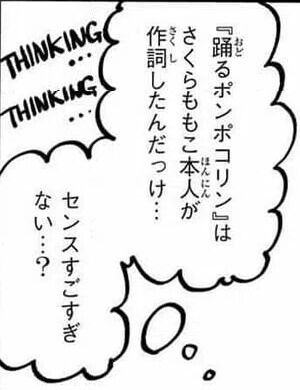 『踊るポンポコリン』は
さくらももこ本人が
作詞したんだっけ…
THINKING
…
THINKING
…
センスすごすぎ
ない…？